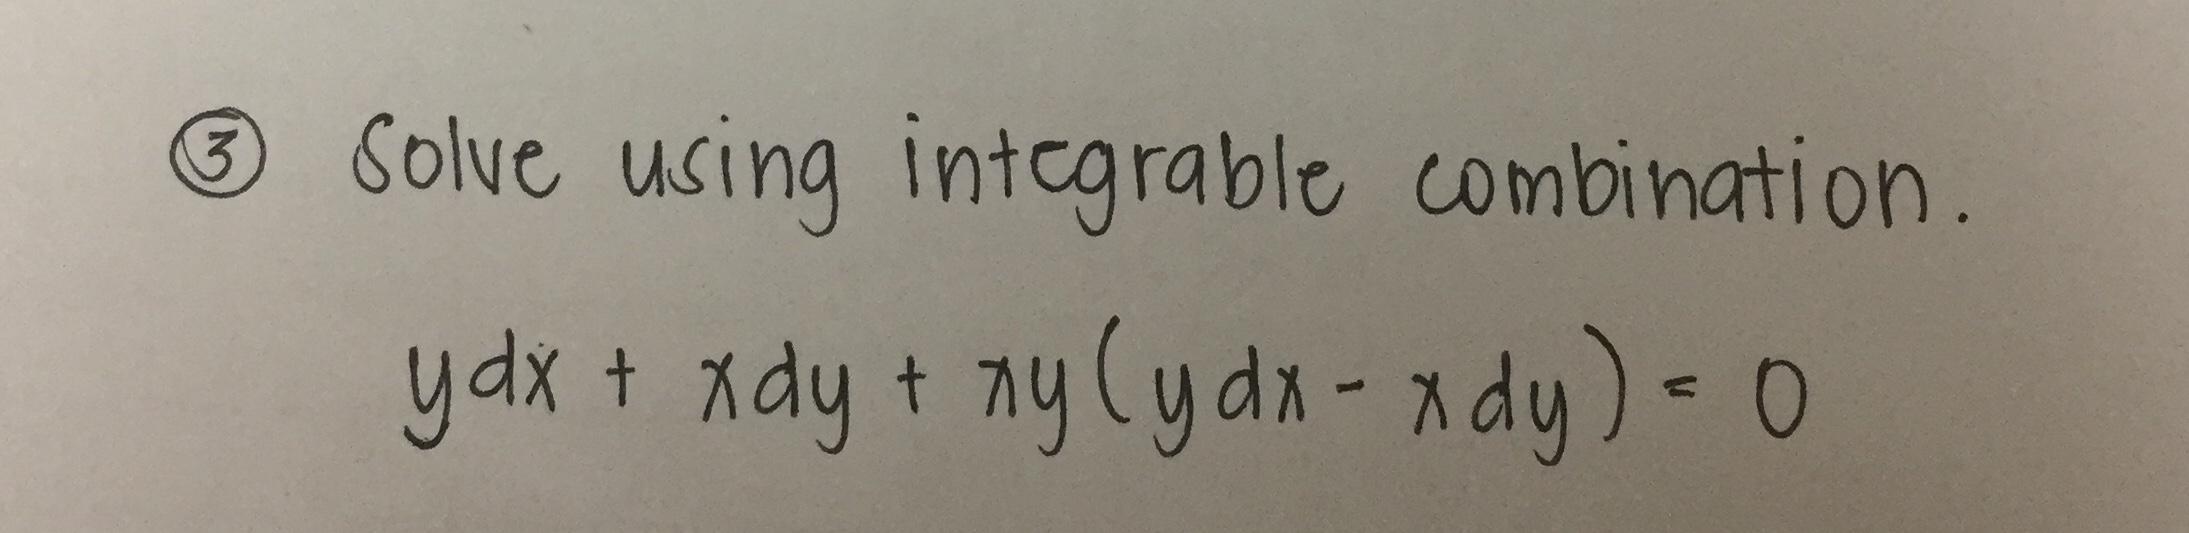 ③ Solve using integrable combination.
ydx + xdy + xy(ydx - xdy) = 0